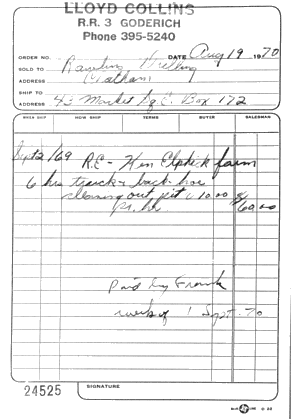 LLOYD COLLINS
R.R. 3 GODERICH
Phone 395-5240
ORDER NO. DATE Aug 19 1970
SOLD TO Rawlin
ADDRESS Chatham
SHIP TO
ADDRESS 43 Market Sq E. Box 172
WHEN SHIP HOW SHIP TERMS BUYER SALESMAN
Sept 2/69 R.E - Ken Elphick farm
6 hrs truck & back hoe
cleaning out pit @ 10.00
pr. hr 60.00
Paid by Frank
week of 1 Sept. 70
24525 SIGNATURE